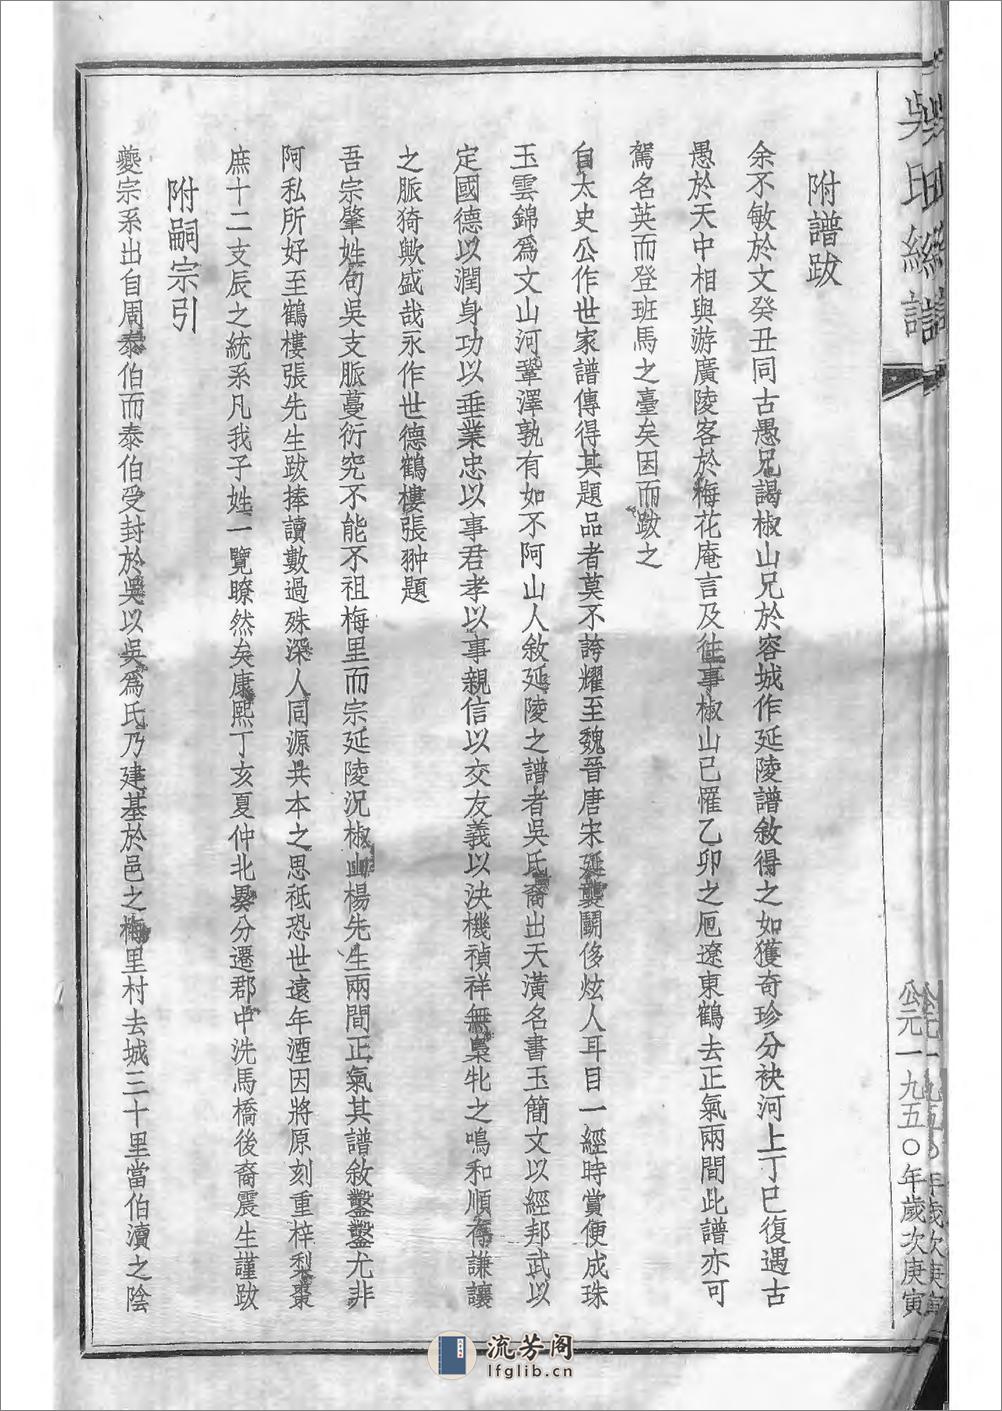 附譜跋
余不敏於文癸丑同古愚兄謁椒山兄於容城作延陵譜敘得之如獲奇珍分袂河上丁巳復遇古
愚於天中相與游廣陵客於梅花庵言及往事椒山已罹乙卯之厄遼東鶴去正氣兩間此譜亦可
駕名英而登班馬之臺矣因而跋之
自太史公作世家譜傳得其題品者莫不誇耀至魏晉唐宋延襲鬭侈炫人耳目一經時賞便成珠
玉雲錦爲文山河鞏澤孰有如不阿山人敘延陵之譜者吳氏裔出天潢名書玉簡文以經邦武以
定國德以潤身功以垂業忠以事君孝以事親信以交友義以決機禎祥無梟牝之鳴和順存謙讓
之脈猗歟盛哉永作世德鶴樓張翀題
吾宗肇姓句吳支脈蔓衍究不能不祖梅里而宗延陵況椒山楊先生兩間正氣其譜敘鑿鑿尤非
阿私所好至鶴樓張先生跋捧讀數過殊深人同源共本之思祗恐世遠年湮因將原刻重梓梨棗
庶十二支辰之統系凡我子姓一覽瞭然矣康熙丁亥夏仲北㬅分遷郡中洗馬橋後裔震生謹跋
附嗣宗引
夔宗系出自周泰伯而泰伯受封於吳以吳爲氏乃建基於邑之梅里村去城三十里當伯瀆之陰
公元一九五〇年歲次庚寅
流芳阁
lfglib.cn